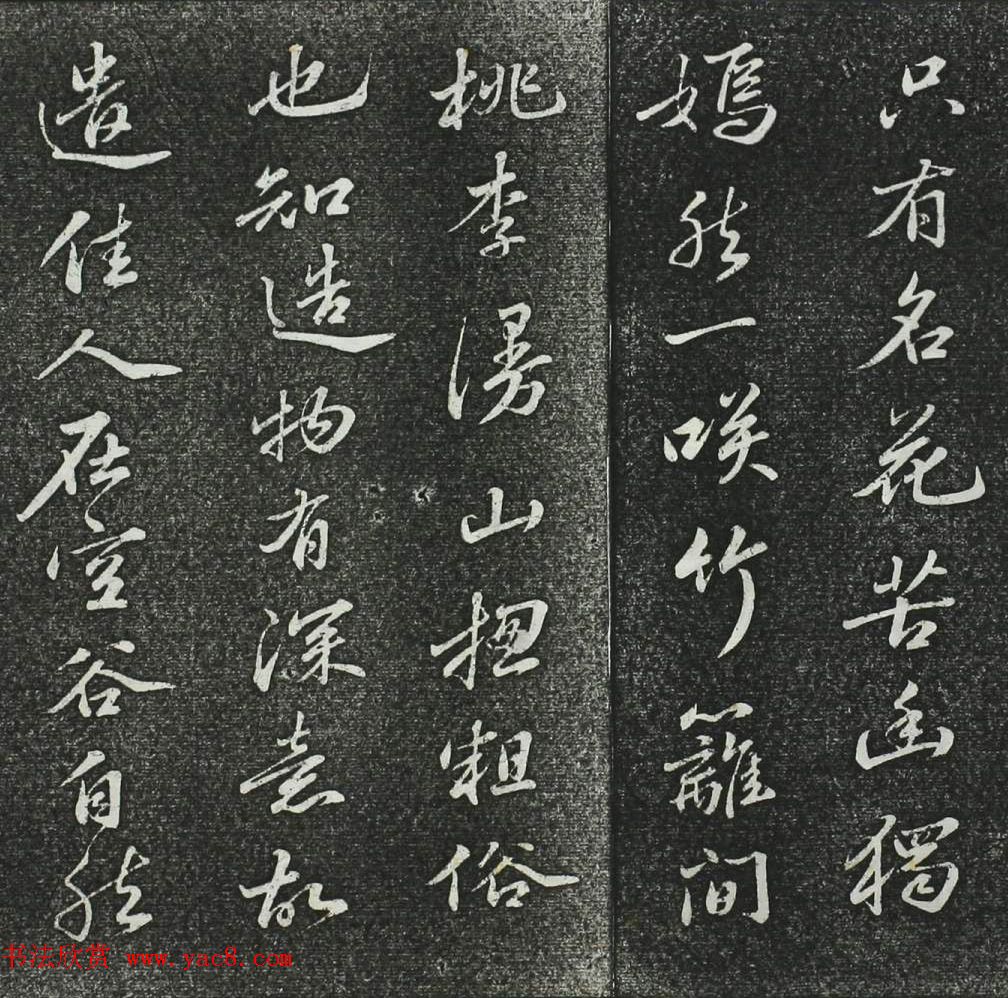 只有名花苦幽獨
嫣然一咲竹籬间
桃李漫山揔粗俗
也知造物有深意故
遣佳人在空谷自然
书法欣赏 www.yac8.com